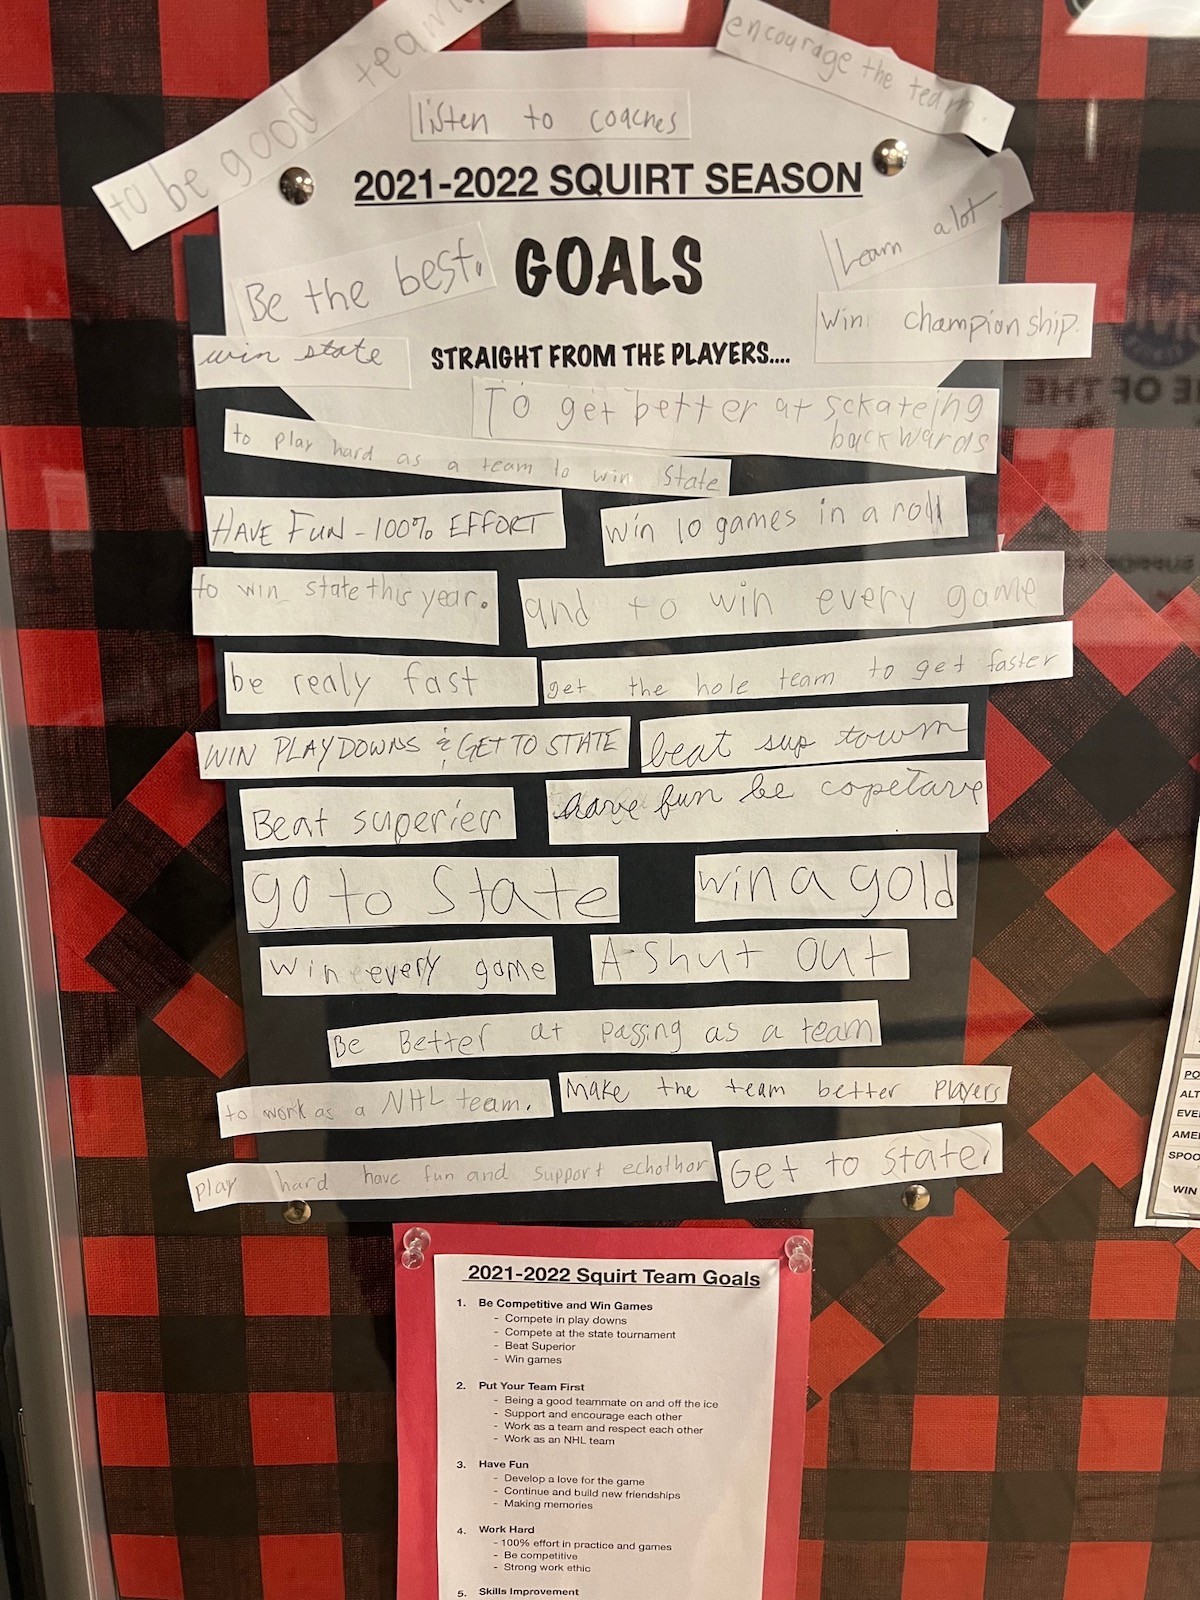 to be good team
encourage the team.
listen to coaches
2021-2022 SQUIRT SEASON
Learn alot
Be the best.
GOALS
win championship.
win state
STRAIGHT FROM THE PLAYERS....
To get better at sckateing
backwards
to play hard as a team to win state
HAVE FUN - 100% EFFORT
win 10 games in a roll
to win state this year.
and to win every game
be realy fast
get the hole team to get faster
WIN PLAYDOWNS & GET TO STATE
beat sup town
Beat superier
have fun be copetave
go to State
win a gold
win every game
A-shut out
Be Better at passing as a team
to work as a NHL team.
Make the team better players
play hard have fun and support echothor
Get to state.
2021-2022 Squirt Team Goals
1. Be Competitive and Win Games
- Compete in play downs
- Compete at the state tournament
- Beat Superior
- Win games
2. Put Your Team First
- Being a good teammate on and off the ice
- Support and encourage each other
- Work as a team and respect each other
- Work as an NHL team
3. Have Fun
- Develop a love for the game
- Continue and build new friendships
- Making memories
4. Work Hard
- 100% effort in practice and games
- Be competitive
- Strong work ethic
5. Skills Improvement
PO
ALT
EVE
AME
SPOO
WIN